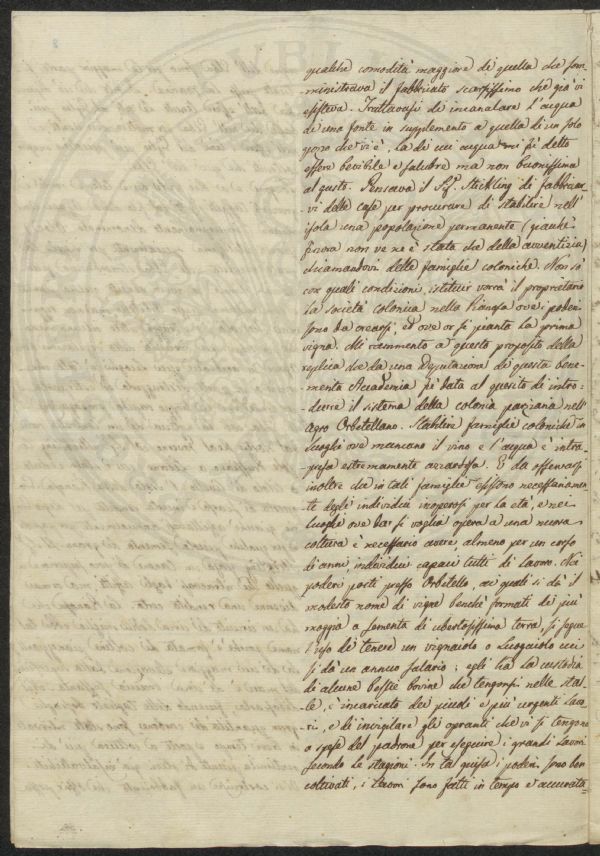 qualche comodità maggiore di quella che som-
ministrava il fabbricato scarsissimo che già vi
esisteva. Trattavasi di incanalare l'acqua
di una fonte in supplemento a quella di un solo
pozzo che vi è, la di cui acqua mi fù detto
essere bevibile e salubre ma non buonissima
al gusto. Pensava il Sig.r Stichling di fabbricar-
vi delle case per procurare di stabilire nell'
isola una popolazione permanente (giacchè
finora non ve ne è stata che della avventizia)
chiamandovi delle famiglie coloniche. Non sò
con quali condizioni istituir vorrà il proprietario
la società colonica nella Pianosa ove i poderi
sono da crearsi, ed ove or si pianta la prima
vigna. Mi rammento a questo proposito della
replica che da una Deputazione di questa bene-
merita Accademia fù data al quesito di intro-
durre il sistema della colonia parziaria nell'
agro Orbetellano. Stabilire famiglie coloniche in
luoghi ove mancano il vino e l'acqua è intra-
presa estremamente azzardosa. È da osservarsi
inoltre che in tali famiglie esistono necessariamen-
te degli individui inoperosi per la età, e nei
luoghi ove dar si voglia opera a una nuova
coltura è necessario avere, almeno per un corso
di anni, individui capaci tutti di lavoro. Nei
poderi posti presso Orbetello, ai quali si dà il
modesto nome di vigne benchè formati di più
moggia a sementa di ubertosissima terra, si segue
l'uso di tenere un vignaiolo o Luogaiolo cui
si dà un annuo salario; egli ha la custodia
di alcune bestie bovine che tengonsi nelle stal-
le, è incaricato dei piccoli e più urgenti lavo-
ri, e di invigilare gli opranti che vi si tengono
a spese del padrone per eseguire i grandi lavori
secondo le stagioni. In tal guisa i poderi sono ben
coltivati, i lavori sono fatti in tempo e accurata-